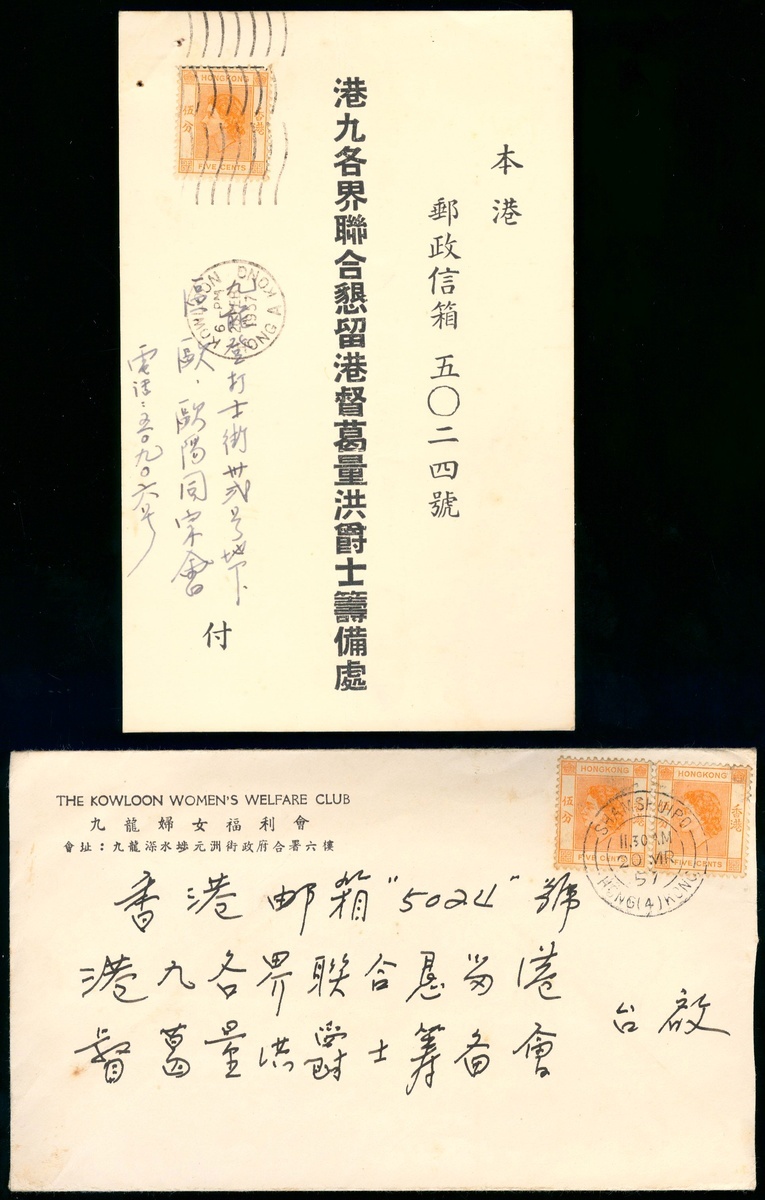 HONGKONG
伍分
香港
FIVE CENTS
本港
郵政信箱 五〇二四號
港九各界聯合懇留港督葛量洪爵士籌備處
KOWLOON
6 PM
1957
HONG KONG
九龍登打士街卅弍号地下
區、歐、歐陽同宗會
電話：五〇九〇六号
付
THE KOWLOON WOMEN'S WELFARE CLUB
九龍婦女福利會
會址：九龍深水埗元洲街政府合署六樓
HONGKONG
伍分
FIVE CENTS
HONGKONG
香港
FIVE CENTS
SHAMSHUIPO
11.30 AM
20 MR
57
HONG (4) KONG
香港邮箱"5024"號
港九各界联合恳留港
督葛量洪爵士筹备會
台啟